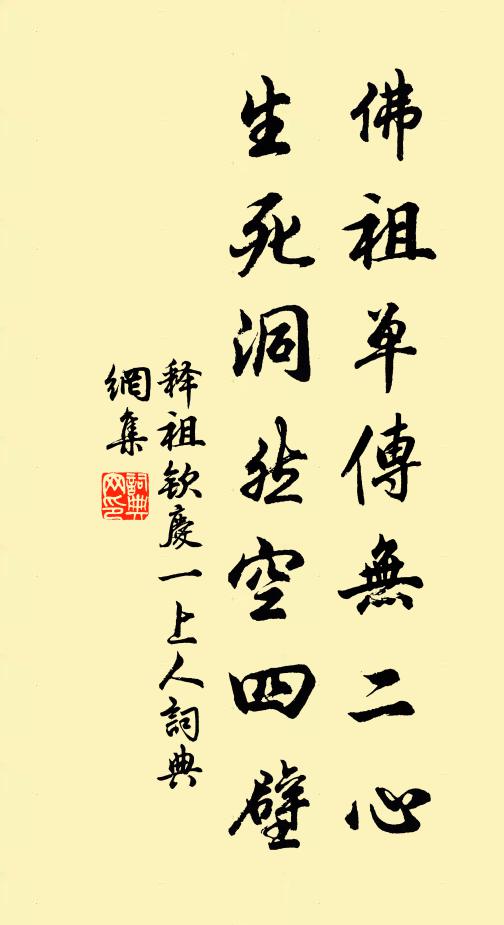 佛祖单傳無二心
生死洞然空四壁
释祖钦慶一上人詞典
網集
詞典網印